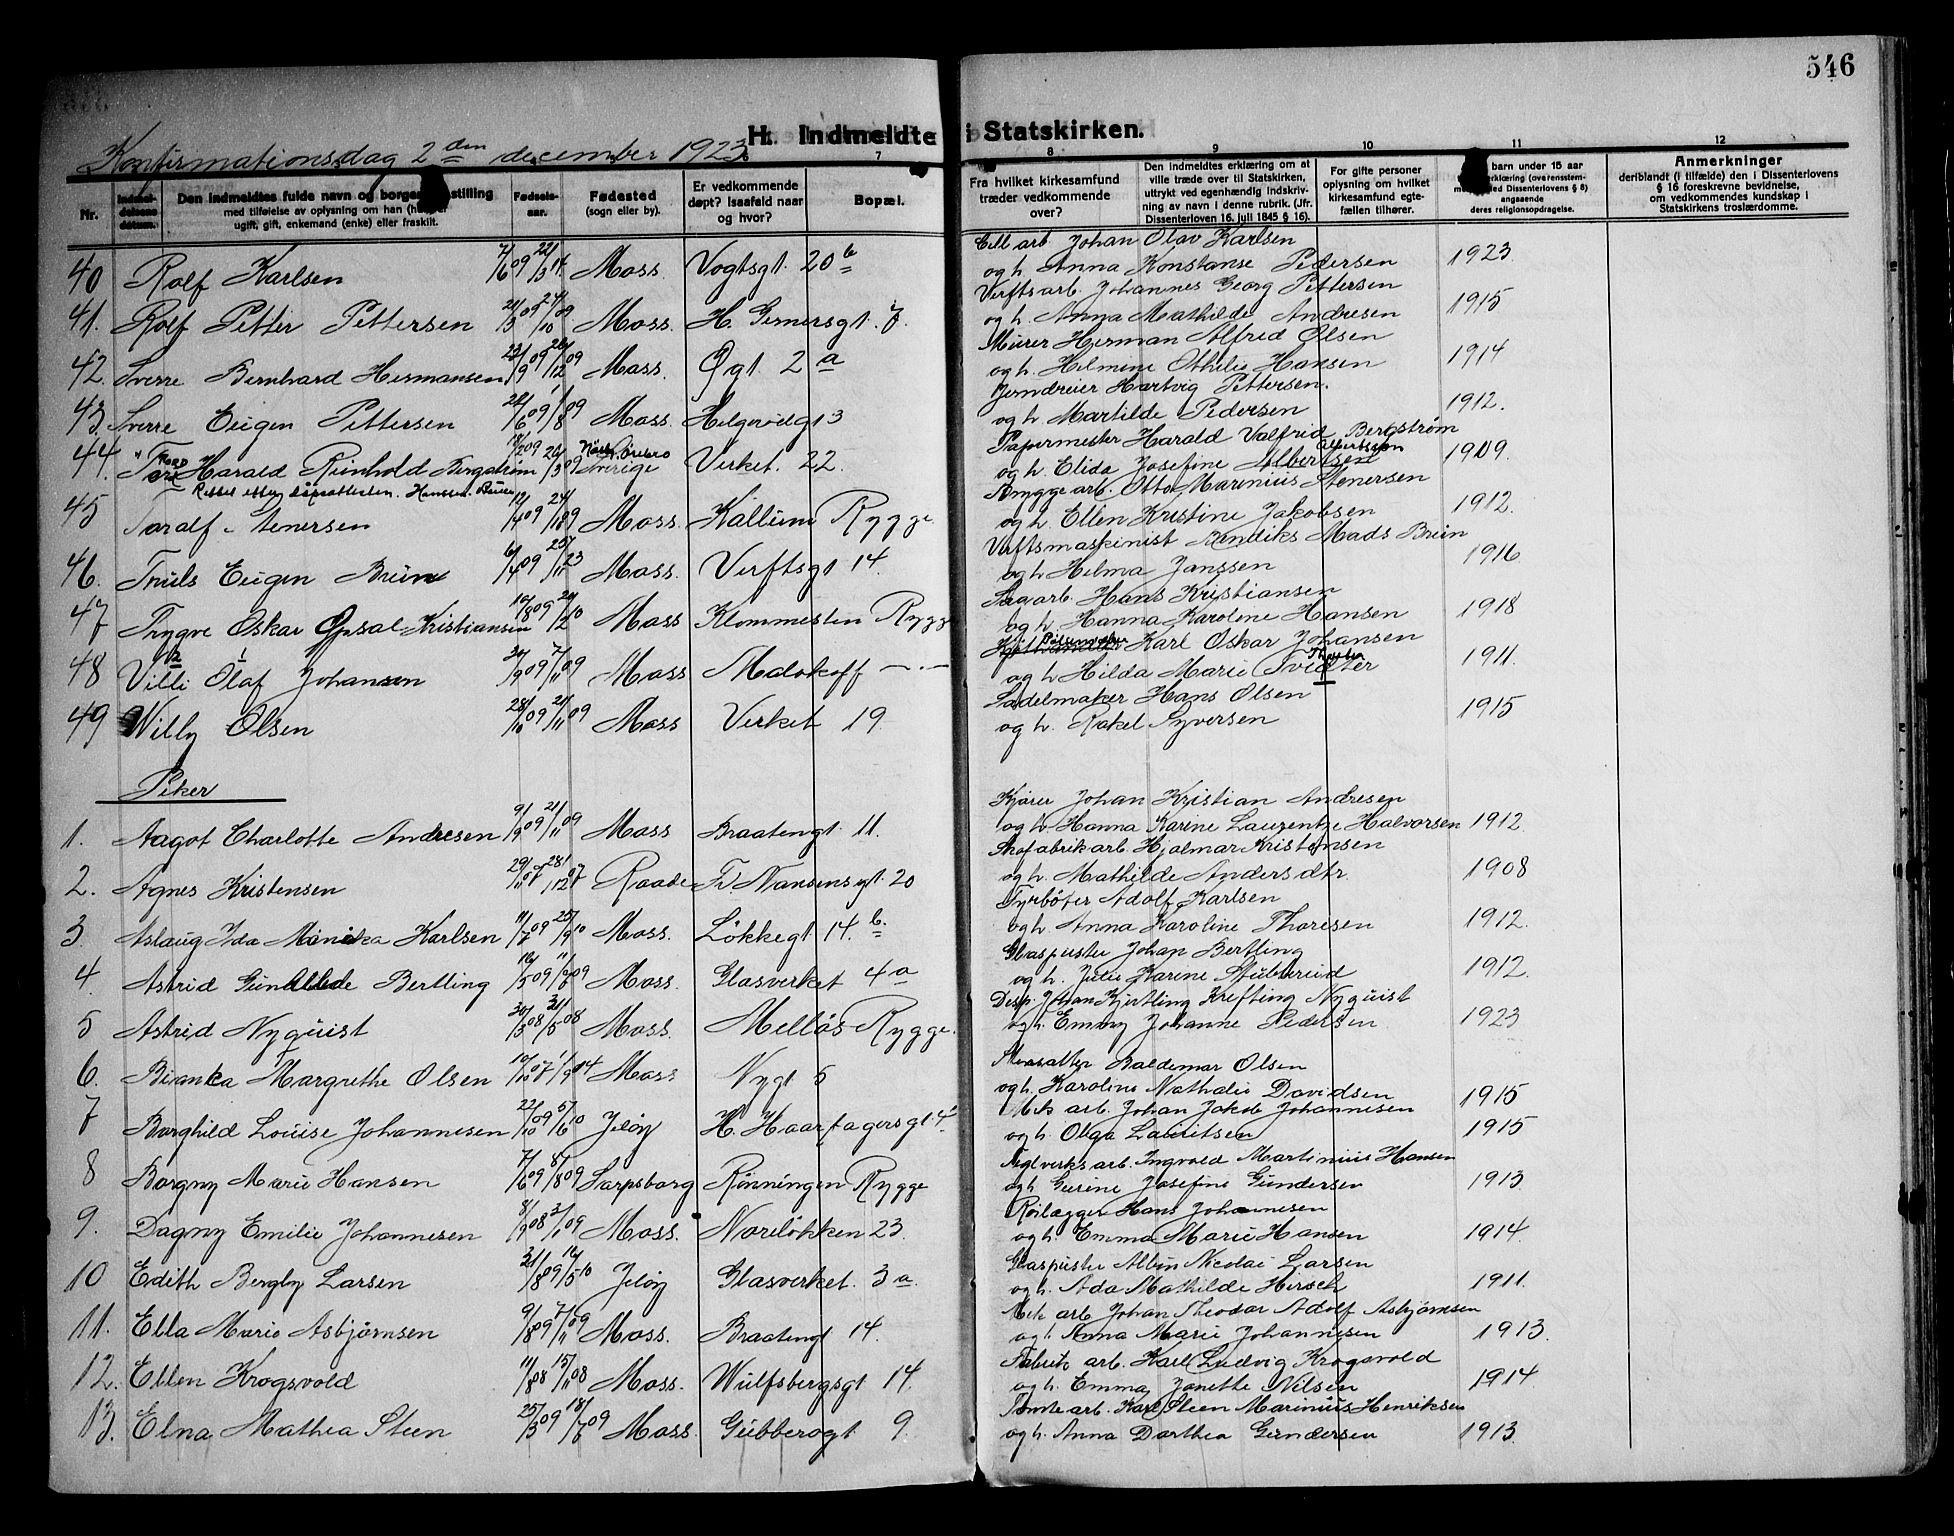 546
H. Indmeldte i Statskirken.
Konfirmationsdag 2den december 1923
6 7 8 9 10 11 12
Nr.
Indmeldelsens datum.
Den indmeldtes fulde navn og borgerlige stilling
med tilføielse av oplysning om han (hun) er
ugift, gift, enkemand (enke) eller fraskilt.
Fødselsaar.
Fødested
(sogn eller by).
Er vedkommende
døpt? Isaafald naar
og hvor?
Bopæl.
Fra hvilket kirkesamfund
træder vedkommende
over?
Den indmeldtes erklæring om at
ville træde over til Statskirken,
uttrykt ved egenhændig indskrivning
av navn i denne rubrik. (Jfr.
Dissenterloven 16. juli 1845 § 16).
For gifte personer
oplysning om hvilket
kirkesamfund egtefællen
tilhører.
barn under 15 aar
erklæring (overensstemmende
med Dissenterlovens § 8)
angaaende
deres religionsopdragelse.
Anmerkninger
deriblandt (i tilfælde) den i Dissenterlovens
§ 16 foreskrevne bevidnelse,
om vedkommendes kundskap i
Statskirkens troslærdomme.
40 Rolf Karlsen 7/6 09 22/3 14 Moss Vogtsgt. 20 b Cell arb. Johan Olav Karlsen
og h. Anna Konstanse Pedersen 1923
41. Rolf Petter Pettersen 21/3 09 24/10 09 Moss. H. Gernersgt. 7. Verftsarb. Johannes Georg Pettersen
og h. Anna Mathilde Andresen 1915
42. Sverre Bernhard Hermansen 23/9 09 26/12 09 Moss. Øgt. 2 a Murer Herman Alfred Olsen
og h. Helmine Othilie Hansen 1914
43. Sverre Eugen Pettersen 22/6 09 1/8 09 Moss. Helgerødgt 3 Jerndreier Hartvig Pettersen.
og h. Martilde Pedersen 1912.
44. Tord Harald Reinhold Bergstrøm 18/2 09 26/3 09 Örebro Sverige Verket. 22. Papermester Harald Valfrid Bergstrøm
og h. Elida Josefine Albertsen Albertsson 1909
Rettet efter dåpsattesten.
45 Toralf Stenersen 12/4 09 24/10 09 Moss. Kallum Rygge Brygge arb. Otto Marinius Stenersen
og h. Ellen Kristine Jakobsen 1912.
46. Truls Eugen Brun 6/4 09 25/11 23 Moss. Verftsgt 14. Verftsmaskinist Bendiks Mads Brun
og h Helma Janssen 1916
47 Trygve Oskar Opsal-Kristiansen 10/8 09 20/2 10 Moss Klommesten Rygge Sagarb. Hans Kristiansen
og h. Hanna Karoline Hansen 1918
48 Villi Olaf Johansen 30/9 09 7/11 09 Moss Malakoff — . — Karl Oskar Johansen
og h Hilda Marie 1911.
49 Willy Olsen 28/10 09 21/11 09 Moss Verket 19. Sadelmaker Hans Olsen
og h. Rakel Syversen 1915
Piker
1. Aagot Charlotte Andresen 9/9 09 21/11 09 Moss Braatengt. 11. Kjører Johan Kristian Andresen
og h. Hanna Karine Laurentze Halvorsen 1912.
2. Agnes Kristensen 29/11 07 28/12 07 Raade Fr. Nansensgt. 20 Skofabrikarb. Hjalmar Kristensen
og h. Mathilde Andersdtr. 1908
3. Aslaug Ida Monika Karlsen 11/7 09 25/9 10 Moss. Løkkegt 14. b. Fyrbøter Adolf Karlsen
og h. Anna Karoline Thoresen 1912.
4. Astrid Gunhilde Bertling 16/5 09 11/7 09 Moss. Glasverket 4 a Glaspuster Johan Bertling
og h. Julie Karine Stubberud 1912.
5 Astrid Nyquist 30/3 08 31/5 08 Moss. Melløs Rygge. Disp. Johan Kjertling Krefting Nyquist
og h. Emmy Johanne Pedersen 1923
6. Bianka Margrethe Olsen 10/10 07 1/9 14 Moss Nygt 5 Stensatter Valdemar Olsen
og h. Karoline Nathalie Davidsen 1915
7 Borghild Louise Johannesen 22/10 09 5/6 10 Jeløy H. Haarfagersgt 4. Mek arb. Johan Jakob Johannesen
og h. Olga Lauritsen 1915
8 Borgny Marie Hansen 7/6 09 8/8 09 Sarpsborg Rønningen Rygge Teglverksarb. Ingvald Martinius Hansen
og h Gurine Josefine Gundersen 1913
9. Dagny Emilie Johannesen 8/9 08 3/1 09 Moss. Noreløkken 23. Rørlægger Hans Johannesen
og h. Emma Marie Hansen 1914.
10 Edith Bergly Larsen 31/8 09 16/5 10 Jeløy Glasverket. 3 a. Glaspuster Albin Nicolai Larsen
og h. Ada Mathilde Hirsch 1911.
11. Ella Marie Asbjørnsen 9/8 09 7/11 09 Moss. Braatengt 14. Mek arb Johan Theodor Adolf Asbjørnsen
og h. Anna Marie Johannesen 1913.
12. Ellen Krogsvold 11/8 08 15/11 08 Moss. Wulfsbergsgt 14. Fabrik arb. Karl Ludvig Krogsvold
og h. Emma Janette Nilsen 1914
13. Elna Mathea Steen 25/3 09 18/7 09 Moss. Gubberogt. 9. Tomtearb. Karl Steen Marinius Henriksen
og h. Anna Dorthea Gundersen 1913.